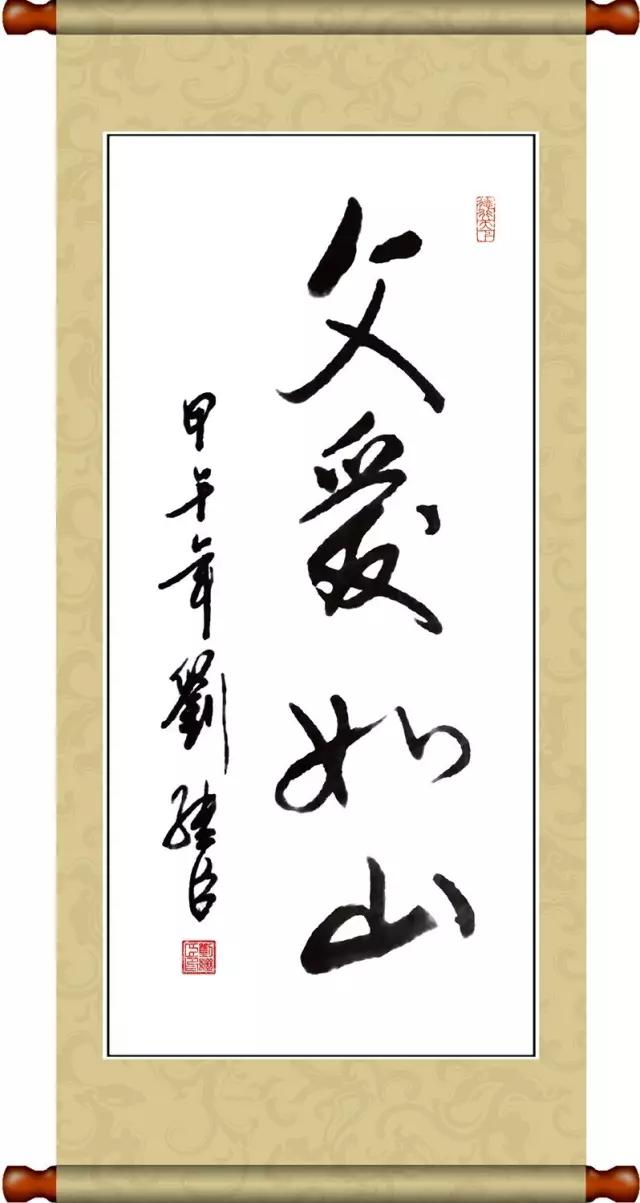 父愛如山
甲午年劉繼臣